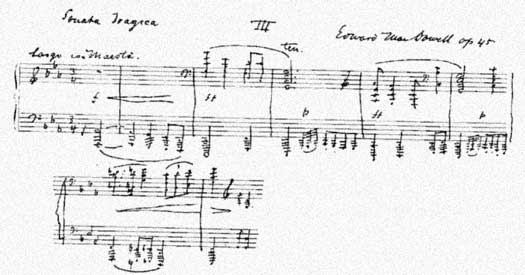 Sonata Tragica III Edward MacDowell op 45
Largo con Maestà.
ten.
f ff p ff p